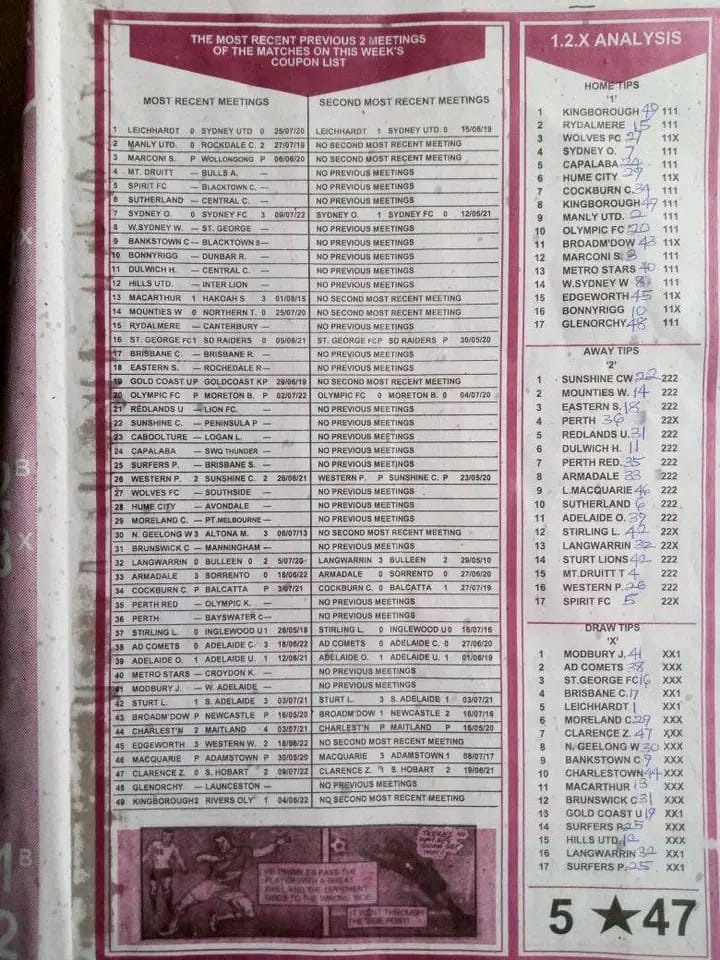 THE MOST RECENT PREVIOUS 2 MEETINGS
OF THE MATCHES ON THIS WEEK'S
COUPON LIST
MOST RECENT MEETINGS SECOND MOST RECENT MEETINGS
1 LEICHHARDT 0 SYDNEY UTD 0 25/07/20 LEICHHARDT 1 SYDNEY UTD. 0 15/06/19
2 MANLY UTD. 0 ROCKDALE C. 2 27/07/19 NO SECOND MOST RECENT MEETING
3 MARCONI S. P WOLLONGONG P 06/06/20 NO SECOND MOST RECENT MEETING
4 MT. DRUITT — BULLS A. — NO PREVIOUS MEETINGS
5 SPIRIT FC — BLACKTOWN C. — NO PREVIOUS MEETINGS
6 SUTHERLAND — CENTRAL C. — NO PREVIOUS MEETINGS
7 SYDNEY O. 0 SYDNEY FC 3 09/07/22 SYDNEY O. 1 SYDNEY FC 0 12/05/21
8 W.SYDNEY W. — ST. GEORGE — NO PREVIOUS MEETINGS
9 BANKSTOWN C — BLACKTOWN S — NO PREVIOUS MEETINGS
10 BONNYRIGG — DUNBAR R. — NO PREVIOUS MEETINGS
11 DULWICH H. — CENTRAL C. — NO PREVIOUS MEETINGS
12 HILLS UTD. — INTER LION — NO PREVIOUS MEETINGS
13 MACARTHUR 1 HAKOAH S 3 01/08/15 NO SECOND MOST RECENT MEETING
14 MOUNTIES W 0 NORTHERN T. 0 25/07/20 NO SECOND MOST RECENT MEETING
15 RYDALMERE — CANTERBURY — NO PREVIOUS MEETINGS
16 ST. GEORGE FC 1 SD RAIDERS 0 05/06/21 ST. GEORGE FC P SD RAIDERS P 30/05/20
17 BRISBANE C. — BRISBANE R. — NO PREVIOUS MEETINGS
18 EASTERN S. — ROCHEDALE R — NO PREVIOUS MEETINGS
19 GOLD COAST U P GOLDCOAST K P 29/06/19 NO SECOND MOST RECENT MEETING
20 OLYMPIC FC P MORETON B. P 02/07/22 OLYMPIC FC 0 MORETON B. 0 04/07/20
21 REDLANDS U — LION FC. — NO PREVIOUS MEETINGS
22 SUNSHINE C. — PENINSULA P — NO PREVIOUS MEETINGS
23 CABOOLTURE — LOGAN L. — NO PREVIOUS MEETINGS
24 CAPALABA — SWQ THUNDER — NO PREVIOUS MEETINGS
25 SURFERS P. — BRISBANE S. — NO PREVIOUS MEETINGS
26 WESTERN P. 2 SUNSHINE C. 2 26/06/21 WESTERN P. P SUNSHINE C. P 23/05/20
27 WOLVES FC — SOUTHSIDE — NO PREVIOUS MEETINGS
28 HUME CITY — AVONDALE — NO PREVIOUS MEETINGS
29 MORELAND C. — PT.MELBOURNE — NO PREVIOUS MEETINGS
30 N. GEELONG W 3 ALTONA M. 3 06/07/13 NO SECOND MOST RECENT MEETING
31 BRUNSWICK C — MANNINGHAM — NO PREVIOUS MEETINGS
32 LANGWARRIN 0 BULLEEN 0 2 5/07/20 LANGWARRIN 3 BULLEEN 2 29/05/10
33 ARMADALE 3 SORRENTO 0 18/06/22 ARMADALE 0 SORRENTO 0 27/06/20
34 COCKBURN C. P BALCATTA P 3/07/21 COCKBURN C. 0 BALCATTA 1 27/07/19
35 PERTH RED — OLYMPIC K. — NO PREVIOUS MEETINGS
36 PERTH — BAYSWATER C — NO PREVIOUS MEETINGS
37 STIRLING L. 0 INGLEWOOD U 1 26/05/18 STIRLING L. 0 INGLEWOOD U 0 16/07/16
38 AD COMETS 0 ADELAIDE C. 3 18/06/22 AD COMETS 0 ADELAIDE C. 0 27/06/20
39 ADELAIDE O. 1 ADELAIDE U. 1 12/06/21 ADELAIDE O. 1 ADELAIDE U. 1 01/06/19
40 METRO STARS — CROYDON K. — NO PREVIOUS MEETINGS
41 MODBURY J. — W. ADELAIDE — NO PREVIOUS MEETINGS
42 STURT L. 1 S. ADELAIDE 3 03/07/21 STURT L. 3 S. ADELAIDE 1 03/07/21
43 BROADM'DOW P NEWCASTLE P 16/05/20 BROADM'DOW 1 NEWCASTLE 2 16/07/16
44 CHARLEST'N 2 MAITLAND 4 03/07/21 CHARLEST'N P MAITLAND P 16/05/20
45 EDGEWORTH 3 WESTERN W. 2 18/06/22 NO SECOND MOST RECENT MEETING
46 MACQUARIE P ADAMSTOWN P 30/05/20 MACQUARIE 3 ADAMSTOWN 1 08/07/17
47 CLARENCE Z. 0 S. HOBART 2 09/07/22 CLARENCE Z. 1 S. HOBART 2 19/06/21
48 GLENORCHY — LAUNCESTON — NO PREVIOUS MEETINGS
49 KINGBOROUGH 2 RIVERS OLY 1 04/06/22 NO SECOND MOST RECENT MEETING
HE DRIBBLES PASS THE
PLAYER WITH A GREAT
AND THE OPPONENT
GOES TO THE WRONG SIDE
IT WENT THROUGH
THE SIDE POST!
1.2.X ANALYSIS
HOME TIPS
'1'
1 KINGBOROUGH 49 111
2 RYDALMERE 15 111
3 WOLVES FC 27 11X
4 SYDNEY O. 7 111
5 CAPALABA 24 111
6 HUME CITY 29 11X
7 COCKBURN C. 34 111
8 KINGBOROUGH 49 111
9 MANLY UTD. 2 111
10 OLYMPIC FC 20 111
11 BROADM'DOW 43 11X
12 MARCONI S. 3 111
13 METRO STARS 40 111
14 W.SYDNEY W 8 111
15 EDGEWORTH 45 11X
16 BONNYRIGG 10 11X
17 GLENORCHY 48 111
AWAY TIPS
'2'
1 SUNSHINE CW 22 222
2 MOUNTIES W. 14 222
3 EASTERN S. 18 222
4 PERTH 36 22X
5 REDLANDS U. 31 222
6 DULWICH H. 11 222
7 PERTH RED. 35 222
8 ARMADALE 33 222
9 L.MACQUARIE 46 222
10 SUTHERLAND 6 222
11 ADELAIDE O. 39 222
12 STIRLING L. 42 22X
13 LANGWARRIN 32 22X
14 STURT LIONS 42 222
15 MT.DRUITT T 4 222
16 WESTERN P. 26 222
17 SPIRIT FC 5 22X
DRAW TIPS
'X'
1 MODBURY J. 41 XX1
2 AD COMETS 38 XXX
3 ST.GEORGE FC 16 XXX
4 BRISBANE C. 17 XX1
5 LEICHHARDT 1 XX1
6 MORELAND C. 29 XXX
7 CLARENCE Z. 47 XXX
8 N. GEELONG W 30 XXX
9 BANKSTOWN C 9 XXX
10 CHARLESTOWN 44 XXX
11 MACARTHUR 13 XXX
12 BRUNSWICK C 31 XXX
13 GOLD COAST U 19 XX1
14 SURFERS P. 25 XXX
15 HILLS UTD. 12 XXX
16 LANGWARRIN 32 XX1
17 SURFERS P. 25 XX1
5 ★ 47